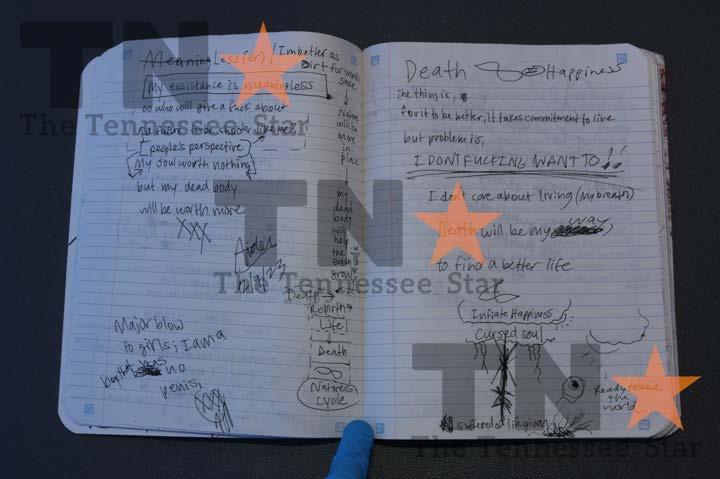 Meaningless(er)
My exsistance is meaningless
so who will give a fuck about
no future to be shooter like me?
people's perspective
My soul worth nothing
but my dead body
will be worth more
XXX
Aiden
Major blow
to girls; I am a
boy that was
no
penis;
I'm better as
Dirt for world's
sake
Nature
will be
more
in-
place
my
dead
body
will
help
the
earth
grow
Death
Rebirth
Life
Death
∞
Natures
Cycle
Death
Happiness
The thing is,
for it to be better, it takes commitment to live
but problem is,
I DONT FUCKING WANT TO!!
I don't care about living (my breath)
Death will be my way
to find a better life
Infiate Happiness
Cursed soul
suffered of life given
Ready to leave
the
world
TN
The Tennessee Star
TN
The Tennessee Star
TN
The Tennessee Star